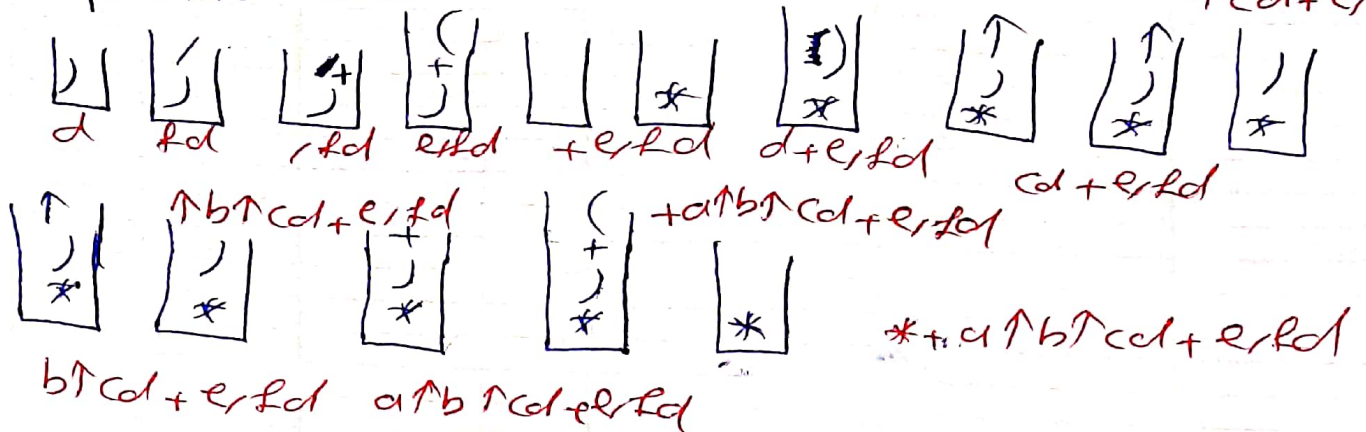 )
/ )
+ )
( + )
*
) *
↑ ) *
↑ ) *
) *
d fd /fd e/fd +e/fd d+e/fd cd+e/fd
↑ ) *
) *
+ ) *
( + ) *
*
↑b↑cd+e/fd +a↑b↑cd+e/fd
*+a↑b↑cd+e/fd
b↑cd+e/fd a↑b↑cd+e/fd